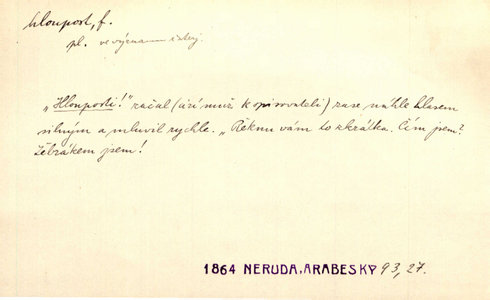 hloupost, f.
pl. ve významu interj.
„Hlouposti!" začal (cizí muž k spisovateli) zase náhle hlasem
silným a mluvil rychle. „Řeknu vám to zkrátka. Čím jsem?
Žebrákem jsem!
1864 NERUDA, ARABESKY 93, 27.